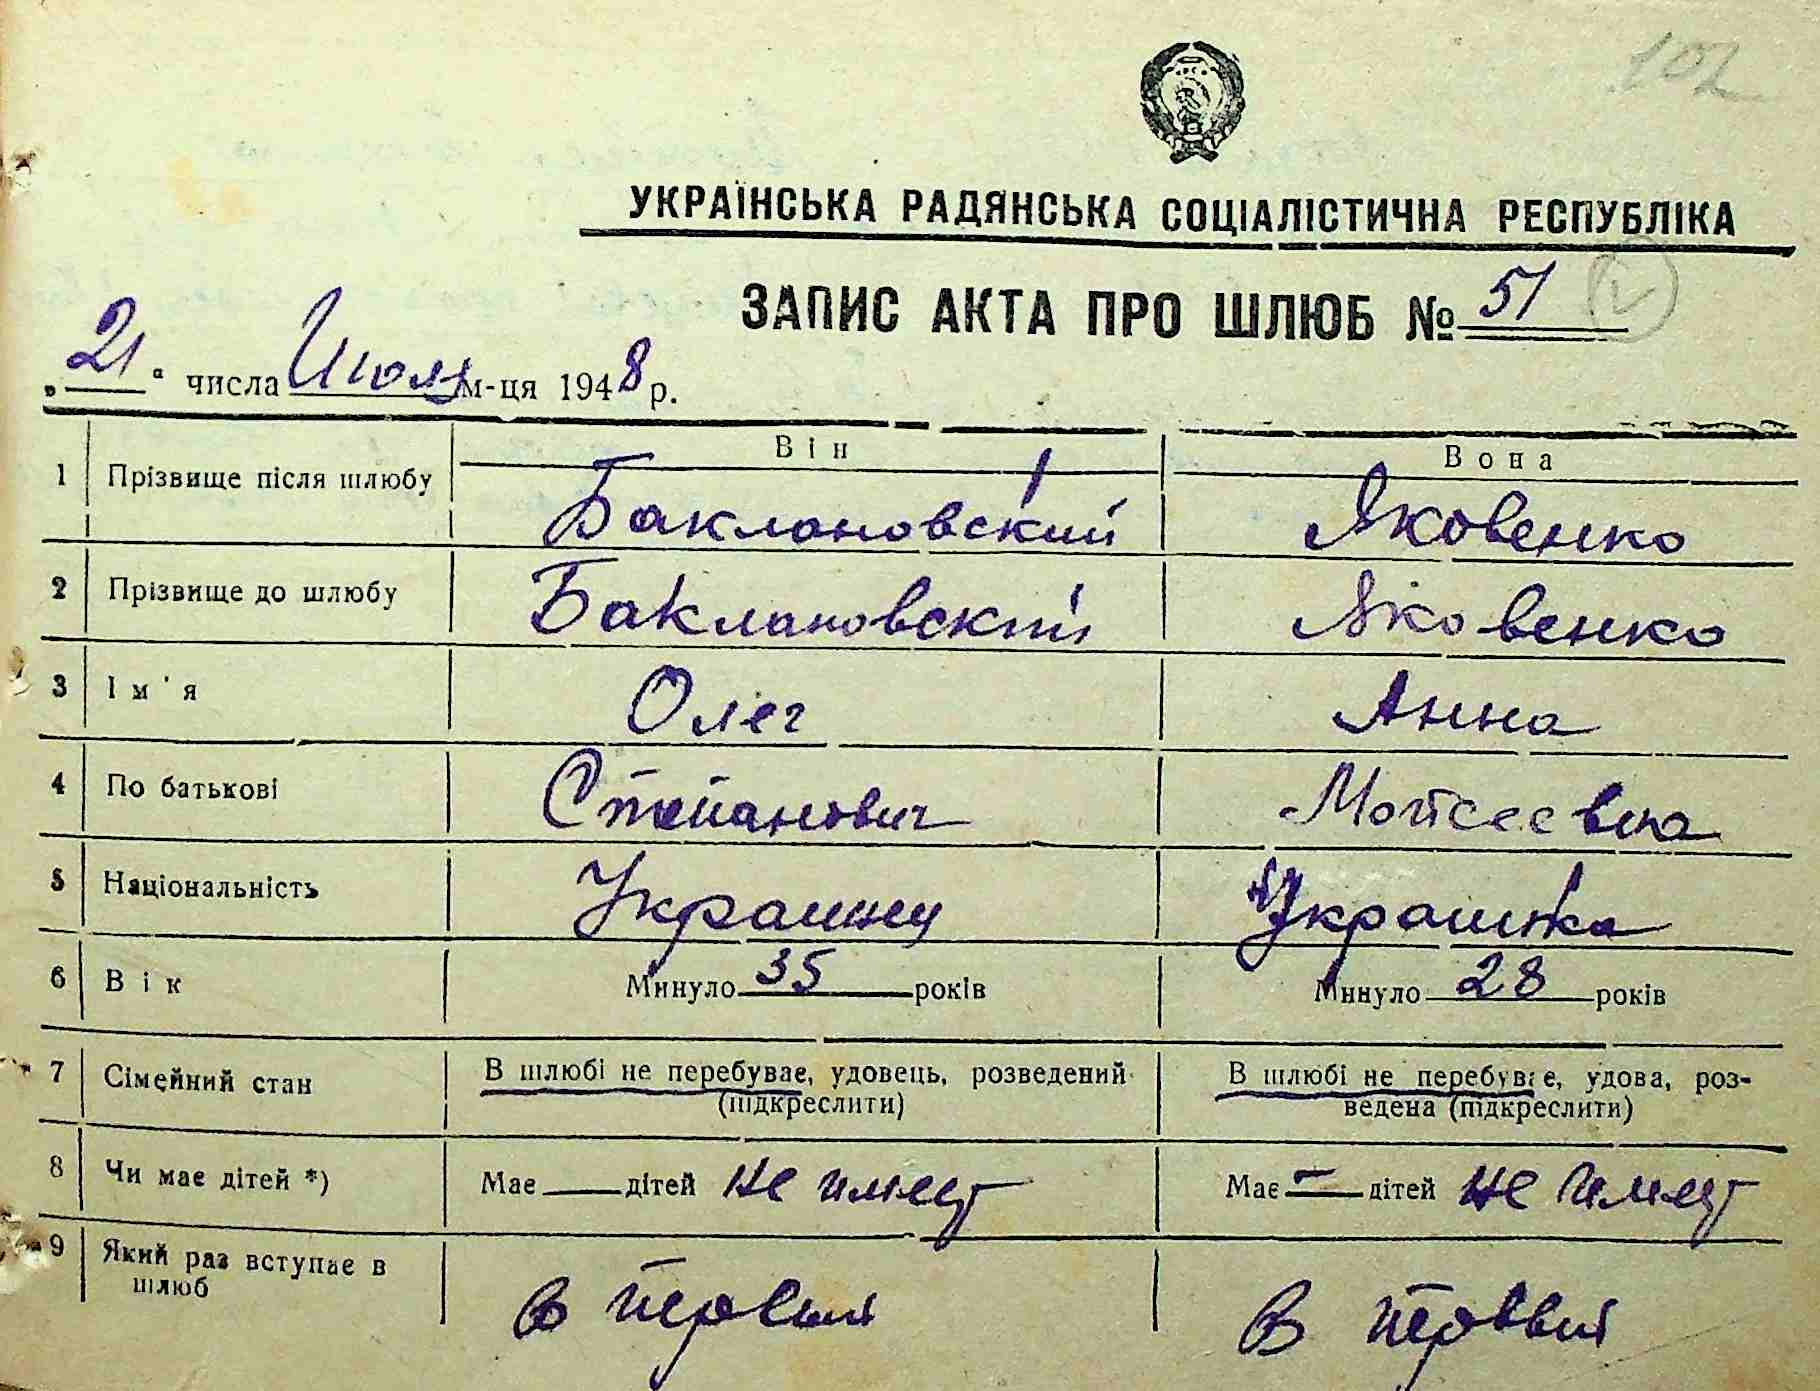 102
УКРАЇНСЬКА РАДЯНСЬКА СОЦІАЛІСТИЧНА РЕСПУБЛІКА
ЗАПИС АКТА ПРО ШЛЮБ № 51
„21“ числа Июля м-ця 1948 р.
Він Вона
1 Прізвище після шлюбу Баклановский Яковенко
2 Прізвище до шлюбу Баклановский Яковенко
3 Ім'я Олег Анна
4 По батькові Степанович Мойсеевна
5 Національність Украинец Украинка
6 Вік Минуло 35 років Минуло 28 років
7 Сімейний стан В шлюбі не перебуває, удовець, розведений В шлюбі не перебуває, удова, роз-
(підкреслити) ведена (підкреслити)
8 Чи має дітей *) Має — дітей не имеет Має — дітей не имеет
9 Який раз вступає в
шлюб в первый в первый